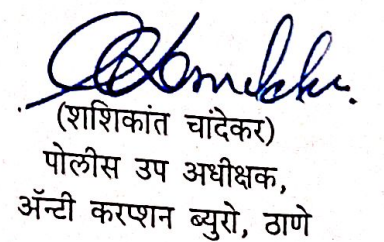 (शशिकांत चांदेकर)
पोलीस उप अधीक्षक,
ॲन्टी करप्शन ब्युरो, ठाणे